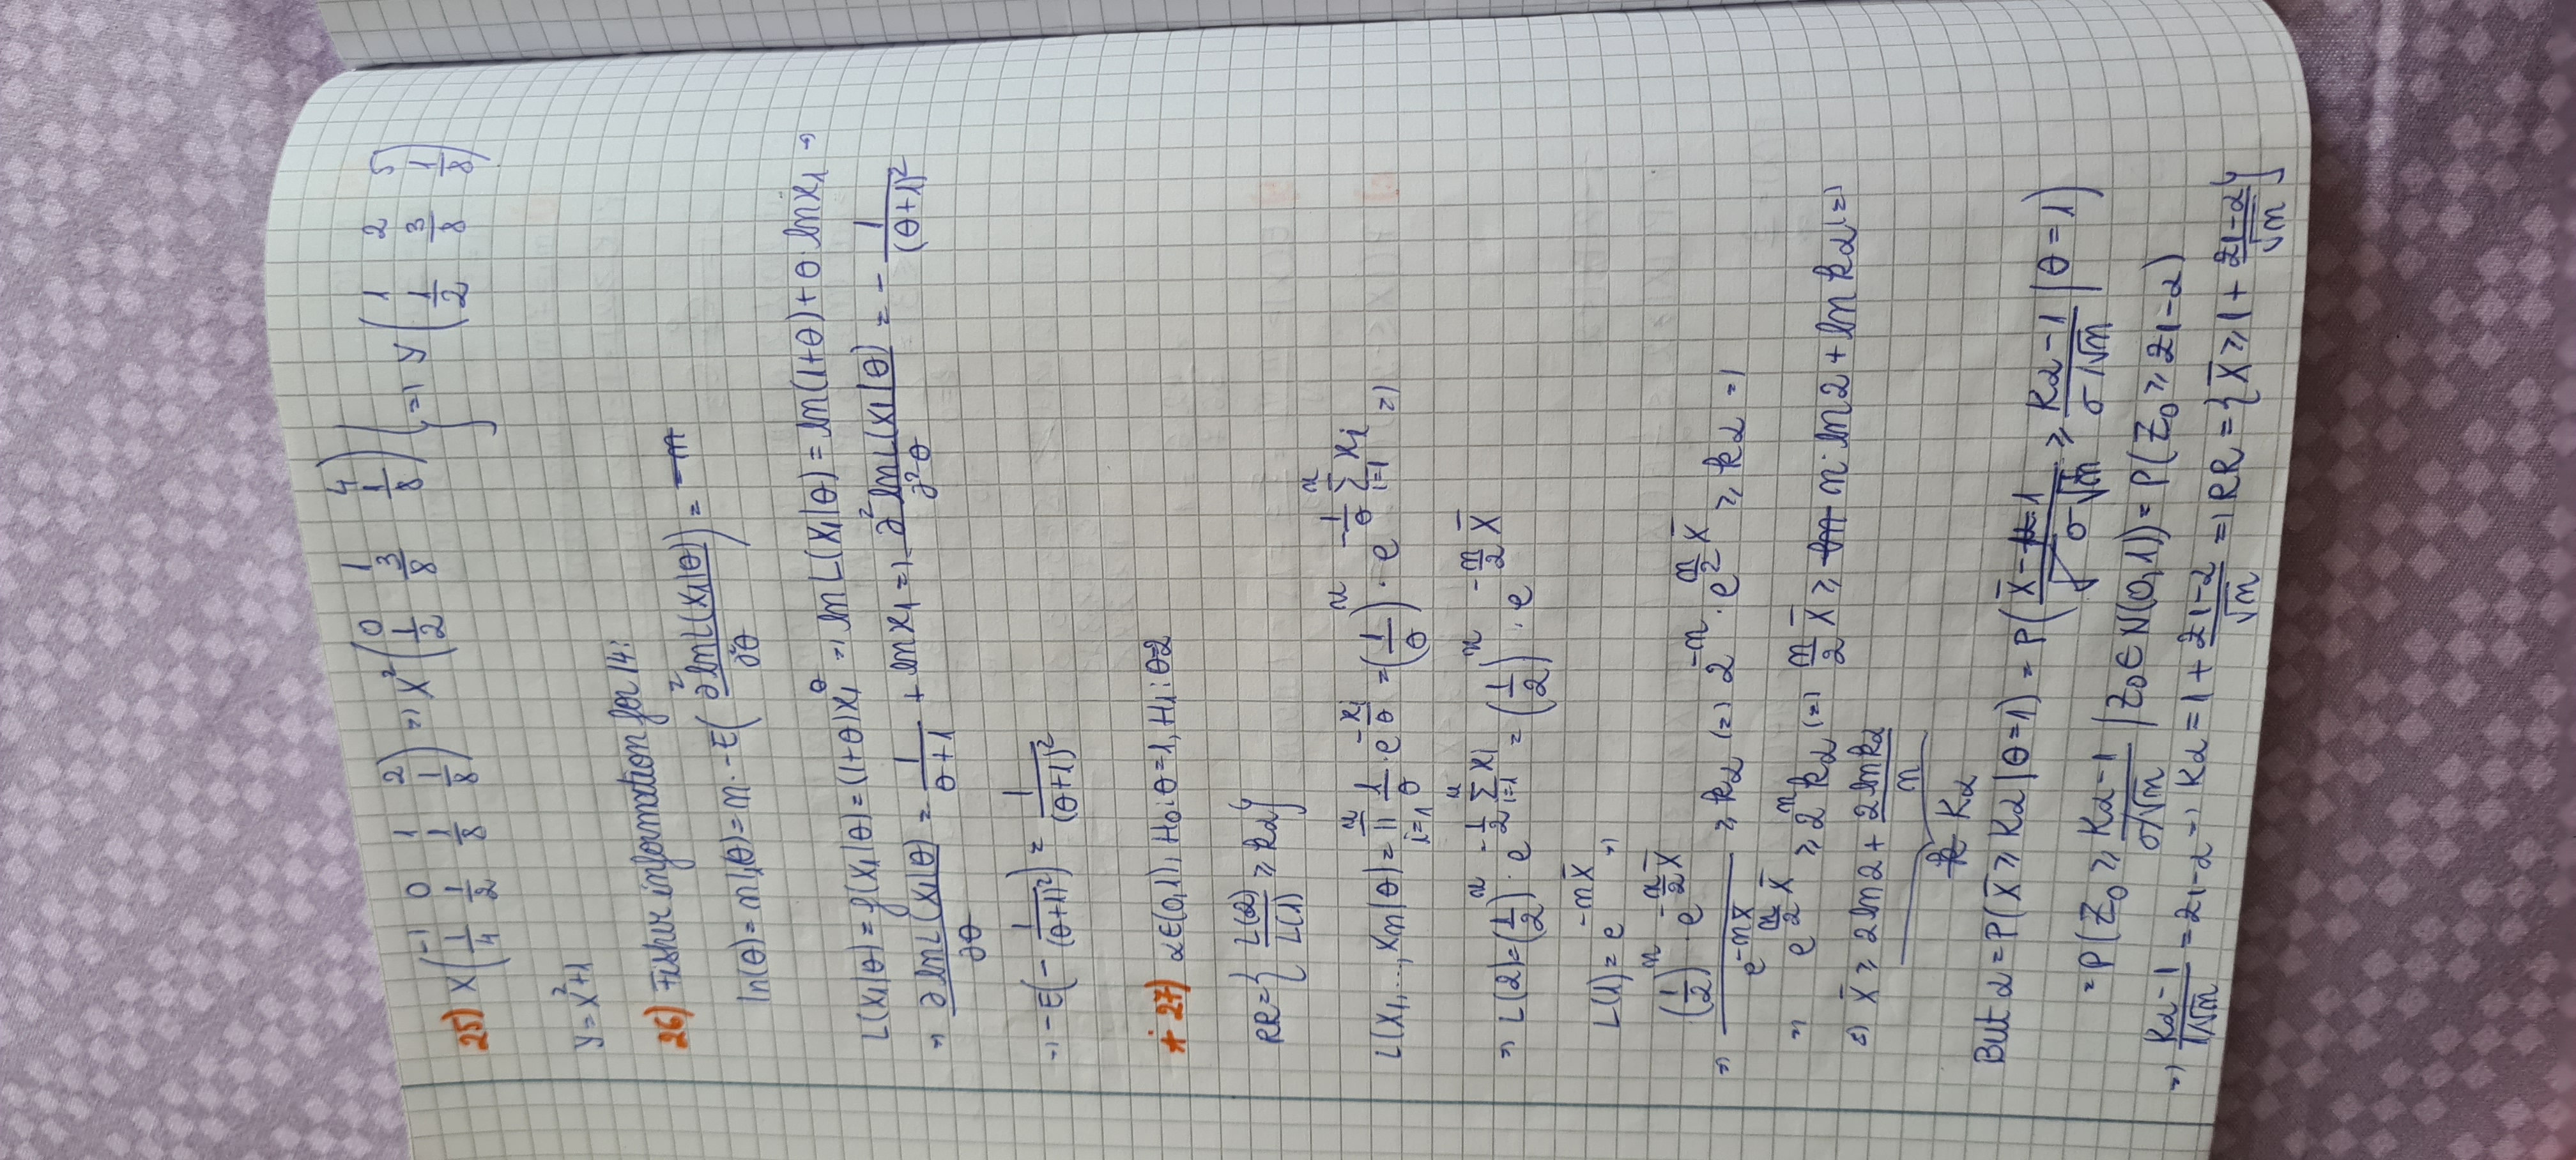 25) X(-1 0 1 2 / 1/4 1/2 1/8 1/8) => X²(0 1 4 / 1/2 3/8 1/8) } => Y(1 2 5 / 1/2 3/8 1/8)
Y = X²+1
26) Fisher information for 14:
In(θ) = nI₁(θ) = n · -E(∂² ln L(X₁|θ) / ∂²θ) = -n
L(X₁|θ) = f(X₁|θ) = (1+θ)x₁^θ => ln L(X₁|θ) = ln(1+θ) + θ ln x₁ =>
=> ∂ ln L(X₁|θ) / ∂θ = 1/(θ+1) + ln x₁ => ∂² ln L(X₁|θ) / ∂²θ = - 1/(θ+1)²
=> -E(- 1/(θ+1)²) = 1/(θ+1)²
* 27) α∈(0,1), H₀: θ=1, H₁: θ=2
RR = { L(2)/L(1) ≥ kα }
L(X₁,...,Xn|θ) = ∏_{i=1}^{n} 1/θ · e^{-xi/θ} = (1/θ)^n · e^{-1/θ Σ_{i=1}^{n} xi} =>
=> L(2) = (1/2)^n · e^{-1/2 Σ_{i=1}^{n} xi} = (1/2)^n · e^{-n/2 X̄}
L(1) = e^{-nX̄} =>
=> (1/2)^n · e^{-n/2 X̄} / e^{-nX̄} ≥ kα (=) 2^{-n} · e^{n/2 X̄} ≥ kα =>
=> e^{n/2 X̄} ≥ 2^n kα (=) n/2 X̄ ≥ ln n · ln 2 + ln kα (=)
(=) X̄ ≥ 2 ln 2 + 2 ln kα / n
k Kα
But α = P(X̄ ≥ Kα | θ=1) = P((X̄ - μ 1)/(σ/√n) ≥ (Kα - 1)/(σ/√n) | θ=1)
= P(Z₀ ≥ (Kα - 1)/(σ/√n) | Z₀ ∈ N(0,1)) = P(Z₀ ≥ z₁₋α)
=> (Kα - 1)/(1/√n) = z₁₋α => Kα = 1 + z₁₋α/√n => RR = { X̄ ≥ 1 + z₁₋α/√n }